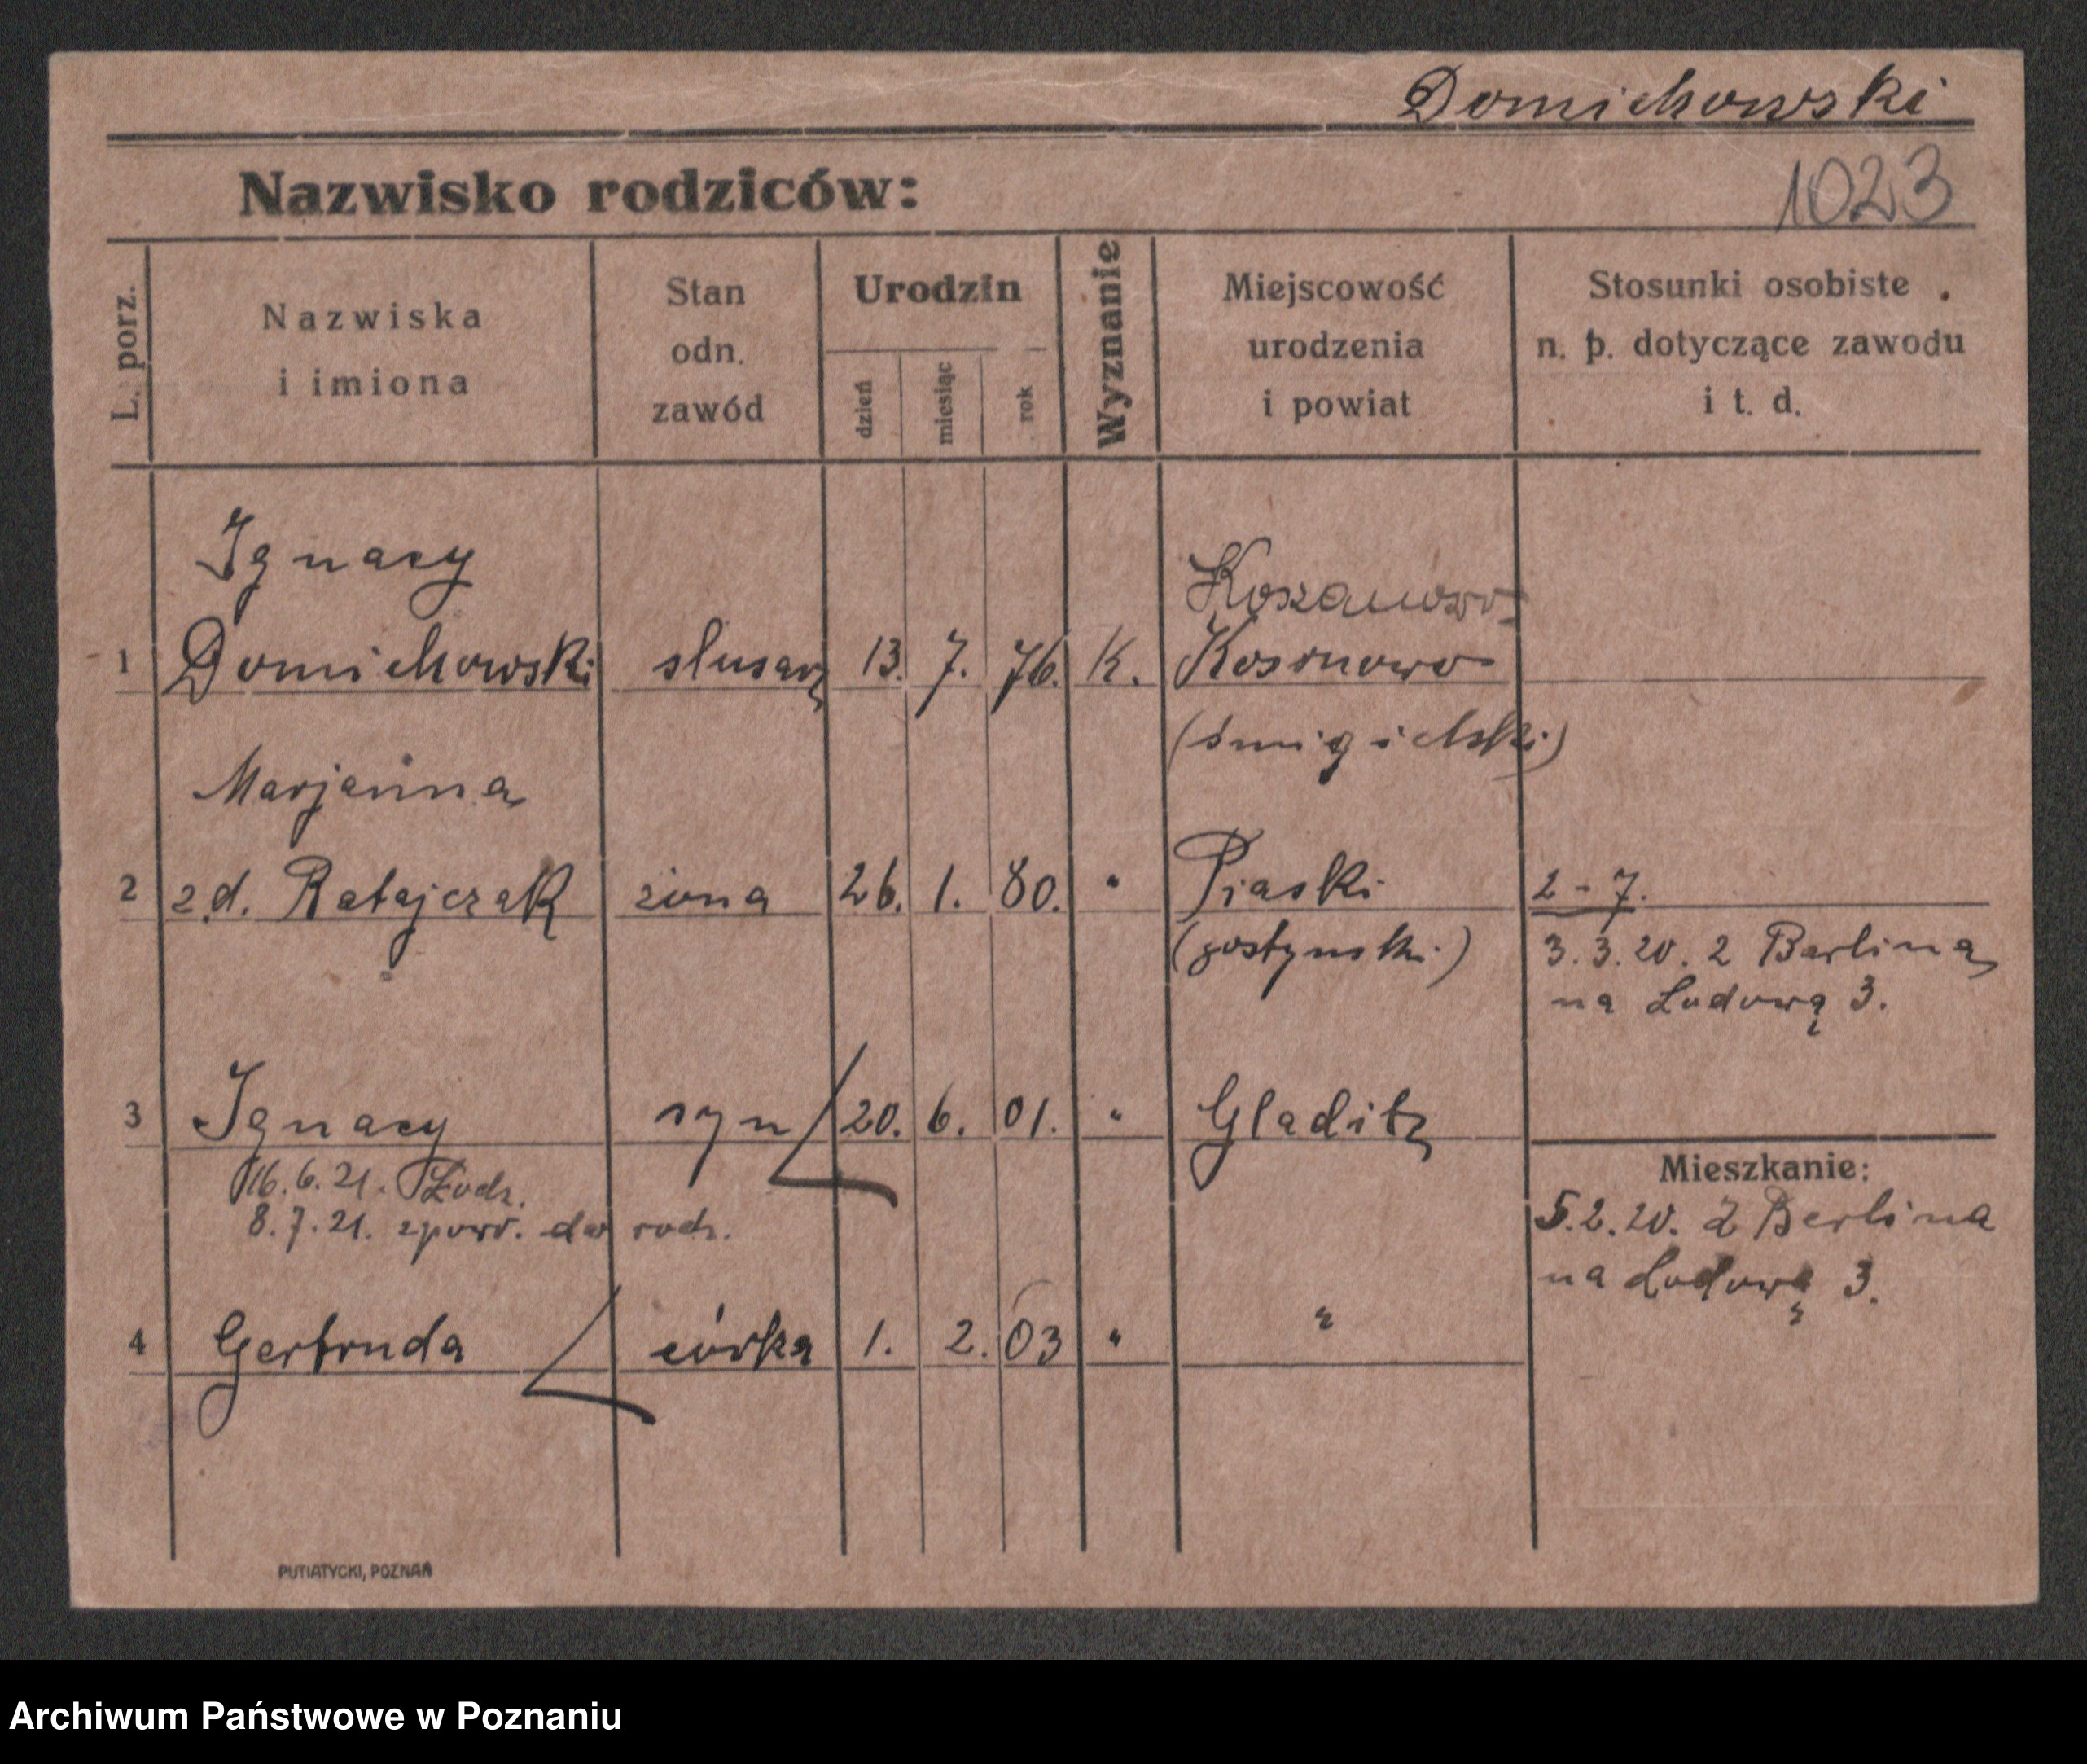 Domichowski
Nazwisko rodziców:
1023
L. porz.
Nazwiska
i imiona
Stan
odn.
zawód
Urodzin
dzień
miesiąc
rok
Wyznanie
Miejscowość
urodzenia
i powiat
Stosunki osobiste
n. p. dotyczące zawodu
i t. d.
Ignacy
Koszanowo
1 Domichowski slusarz 13. 7. 76. K. Kosonowo
(śmigielski)
Marjanna
2 z d. Ratajczak żona 26. 1. 80. " Piaski 2-7.
(gostynski) 3.3.20. z Berlina
na Ludową 3.
3 Ignacy syn 20. 6. 01. " Gladitz
Mieszkanie:
16.6.21. Łodz.
8.7.21. zpowr. do rodz.
5.2.20. z Berlina
na Ludową 3.
4 Gertruda córka 1. 2. 03 " "
PUTIATYCKI, POZNAŃ
Archiwum Państwowe w Poznaniu